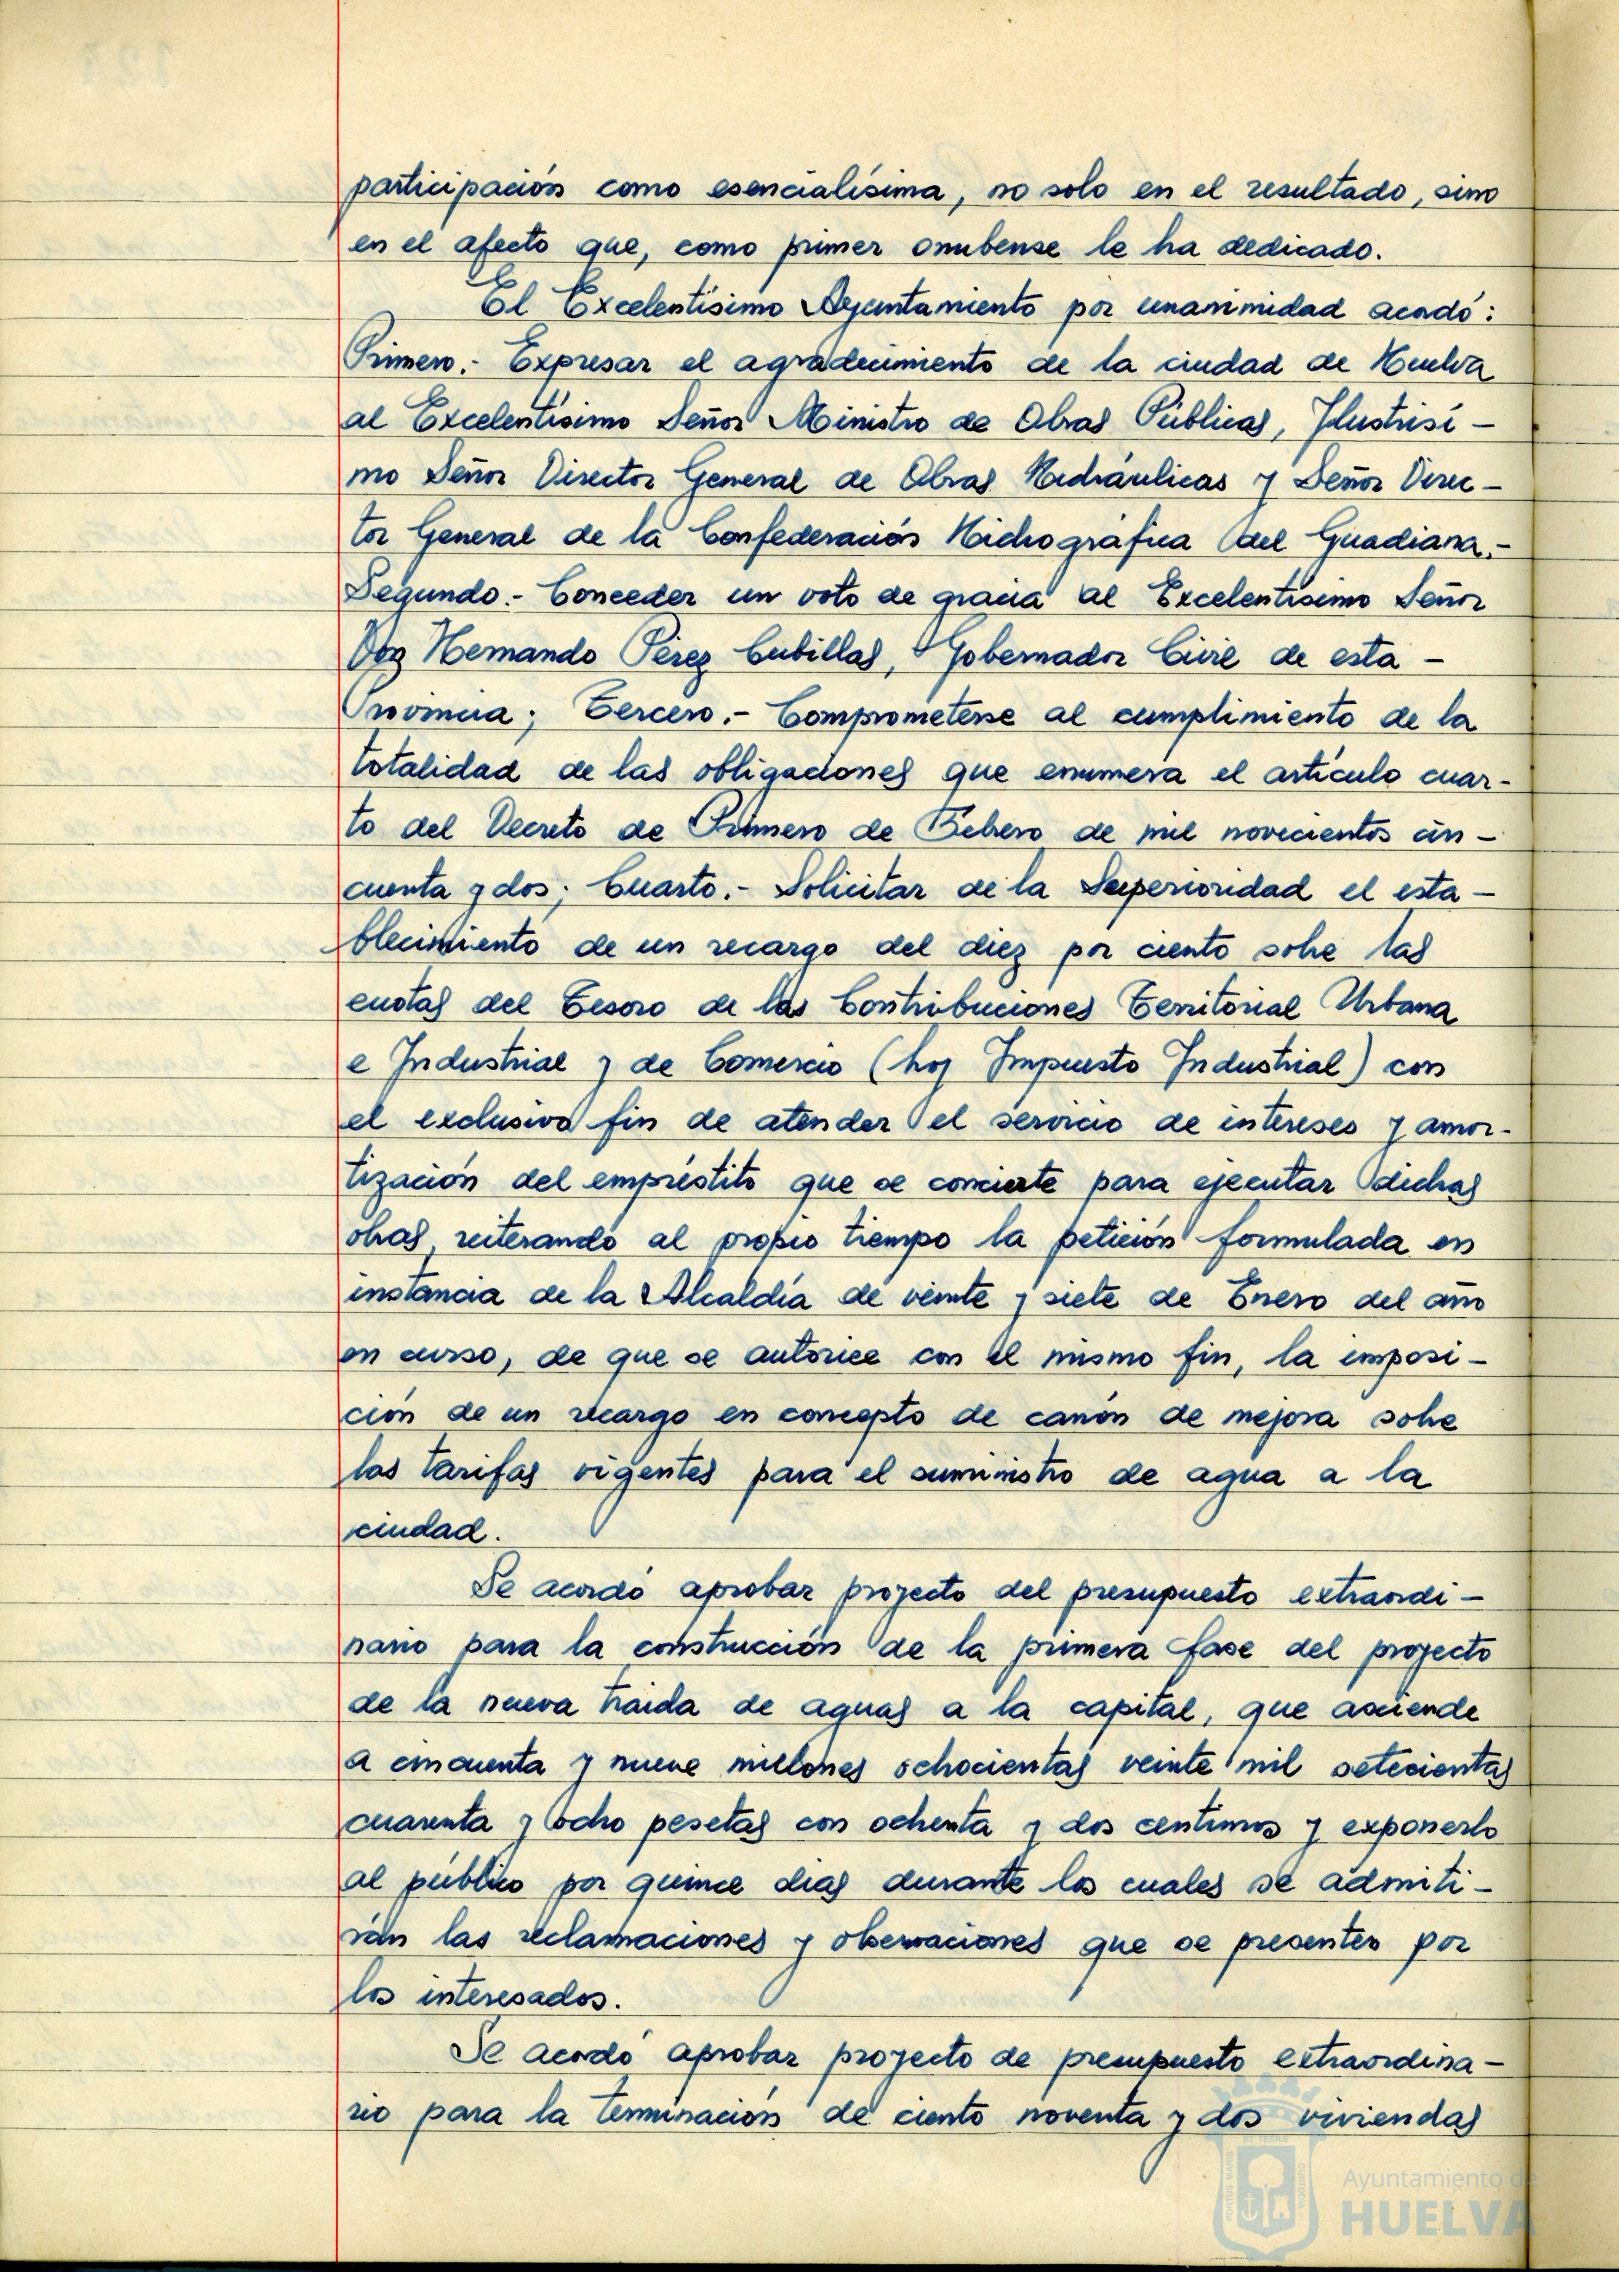 participación como esencialísima, no solo en el resultado, sino
en el afecto que, como primer onubense le ha dedicado.
El Excelentísimo Ayuntamiento por unanimidad acordó:
Primero.- Expresar el agradecimiento de la ciudad de Huelva
al Excelentísimo Señor Ministro de Obras Públicas, Ilustrísi-
mo Señor Director General de Obras Hidráulicas y Señor Direc-
tor General de la Confederación Hidrográfica del Guadiana.-
Segundo.- Conceder un voto de gracia al Excelentísimo Señor
Don Hernando Pérez Cubillas, Gobernador Civil de esta -
Provincia; Tercero.- Comprometerse al cumplimiento de la
totalidad de las obligaciones que enumera el artículo cuar-
to del Decreto de Primero de Febrero de mil novecientos cin-
cuenta y dos; Cuarto.- Solicitar de la Superioridad el esta-
blecimiento de un recargo del diez por ciento sobre las
cuotas del Tesoro de las Contribuciones Territorial Urbana
e Industrial y de Comercio (hoy Impuesto Industrial) con
el exclusivo fin de atender el servicio de intereses y amor-
tización del empréstito que se concierte para ejecutar dichas
obras, reiterando al propio tiempo la petición formulada en
instancia de la Alcaldía de veinte y siete de Enero del año
en curso, de que se autorice con el mismo fin, la imposi-
ción de un recargo en concepto de canón de mejora sobre
las tarifas vigentes para el suministro de agua a la
ciudad.
Se acordó aprobar proyecto del presupuesto extraordi-
nario para la construcción de la primera fase del proyecto
de la nueva traida de aguas a la capital, que asciende
a cincuenta y nueve millones ochocientas veinte mil setecientas
cuarenta y ocho pesetas con ochenta y dos centimos y exponerlo
al público por quince dias durante los cuales se admiti-
rán las reclamaciones y observaciones que se presenten por
los interesados.
Se acordó aprobar proyecto de presupuesto extraordina-
rio para la terminación de ciento noventa y dos viviendas
Ayuntamiento de
HUELVA